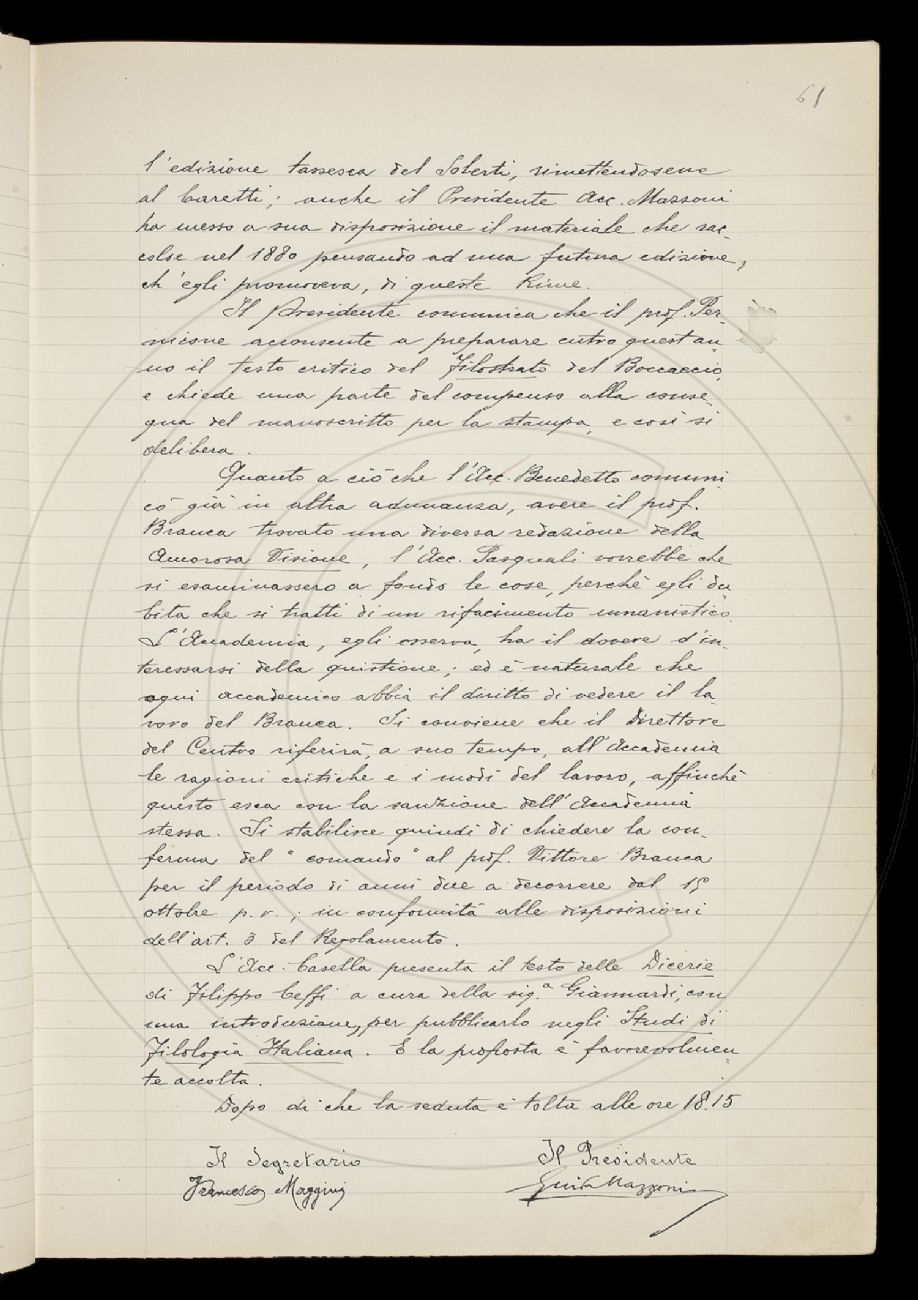 61
l'edizione tassesca del Solerti, rimettendosene
al Caretti; anche il Presidente Acc. Mazzoni
ha messo a sua disposizione il materiale che rac-
colse nel 1880 pensando ad una futura edizione,
ch'egli promoveva, di queste Rime.
Il Presidente comunica che il prof. Per-
nicone acconsente a preparare entro quest'an-
no il testo critico del Filostrato del Boccaccio,
e chiede una parte del compenso alla conse-
gna del manoscritto per la stampa, e così si
delibera.
Quanto a ciò che l'Acc. Benedetto comuni-
cò già in altra adunanza, avere il prof.
Branca trovato una diversa redazione della
Amorosa Visione, l'Acc. Pasquali vorrebbe che
si esaminassero a fondo le cose, perché egli du-
bita che si tratti di un rifacimento umanistico.
L'Accademia, egli osserva, ha il dovere d'in-
teressarsi della quistione; ed è naturale che
ogni accademico abbia il diritto di vedere il la-
voro del Branca. Si conviene che il Direttore
del Centro riferirà, a suo tempo, all'Accademia
le ragioni critiche e i modi del lavoro, affinché
questo esca con la sanzione dell'Accademia
stessa. Si stabilisce quindi di chiedere la con-
ferma del "comando" al prof. Vittore Branca
per il periodo di anni due a decorrere dal 15
ottobre p. v.; in conformità alle disposizioni
dell'art. 3 del Regolamento.
L'Acc. Casella presenta il testo delle Dicerie
di Filippo Ceffi a cura della sig.a Giannardi, con
una introduzione, per pubblicarlo negli Studi di
Filologia Italiana. E la proposta è favorevolmen-
te accolta.
Dopo di che la seduta è tolta alle ore 18.15
Il Segretario
Francesco Maggini
Il Presidente
Guido Mazzoni